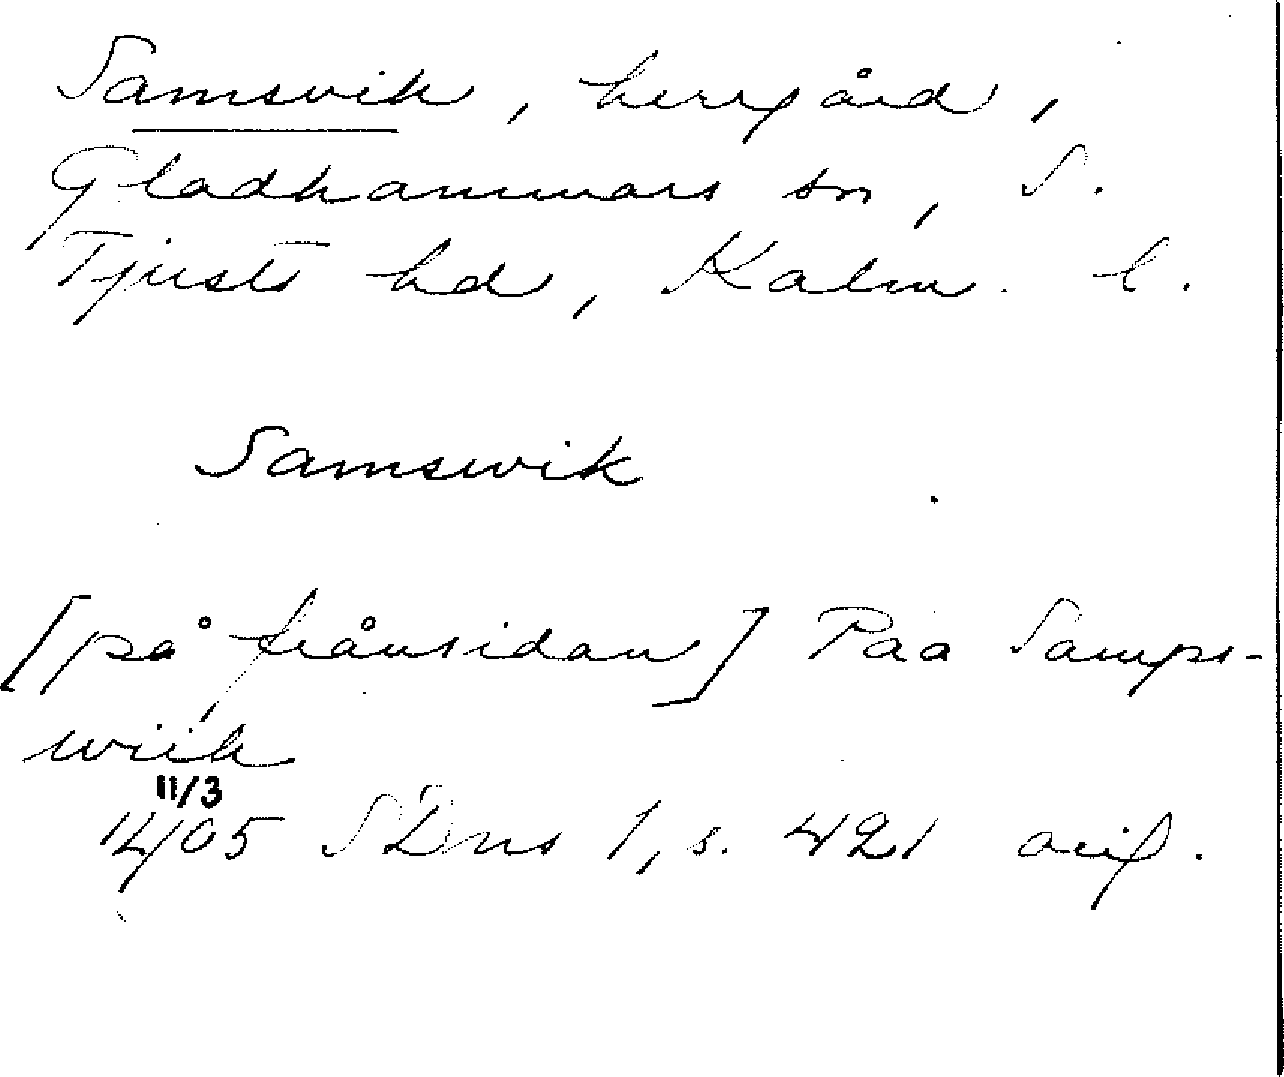 Samsvik, herrgård,
Gladhammars sn, S.
Tjusts hd, Kalm. l.
Samswik
[på frånsidan] Paa Samps-
wiik
11/3
1405 SDns 1, s. 421 orig.